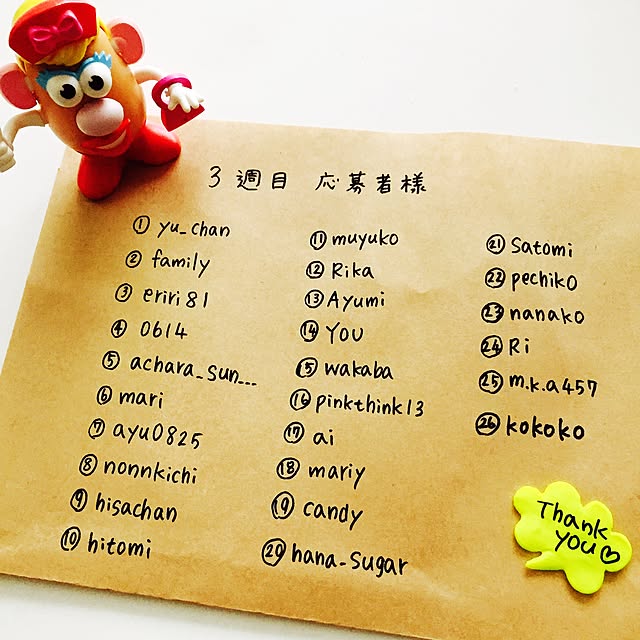 3週目 応募者様
① yu_chan
② family
③ eriri81
④ 0614
⑤ achara_sun__
⑥ mari
⑦ ayu0825
⑧ nonnkichi
⑨ hisachan
⑩ hitomi
⑪ muyuko
⑫ Rika
⑬ Ayumi
⑭ YOU
⑮ wakaba
⑯ pinkthink13
⑰ ai
⑱ mariy
⑲ candy
⑳ hana_sugar
㉑ Satomi
㉒ pechiko
㉓ nanako
㉔ Ri
㉕ m.k.a457
㉖ kokoko
Thank
you♡